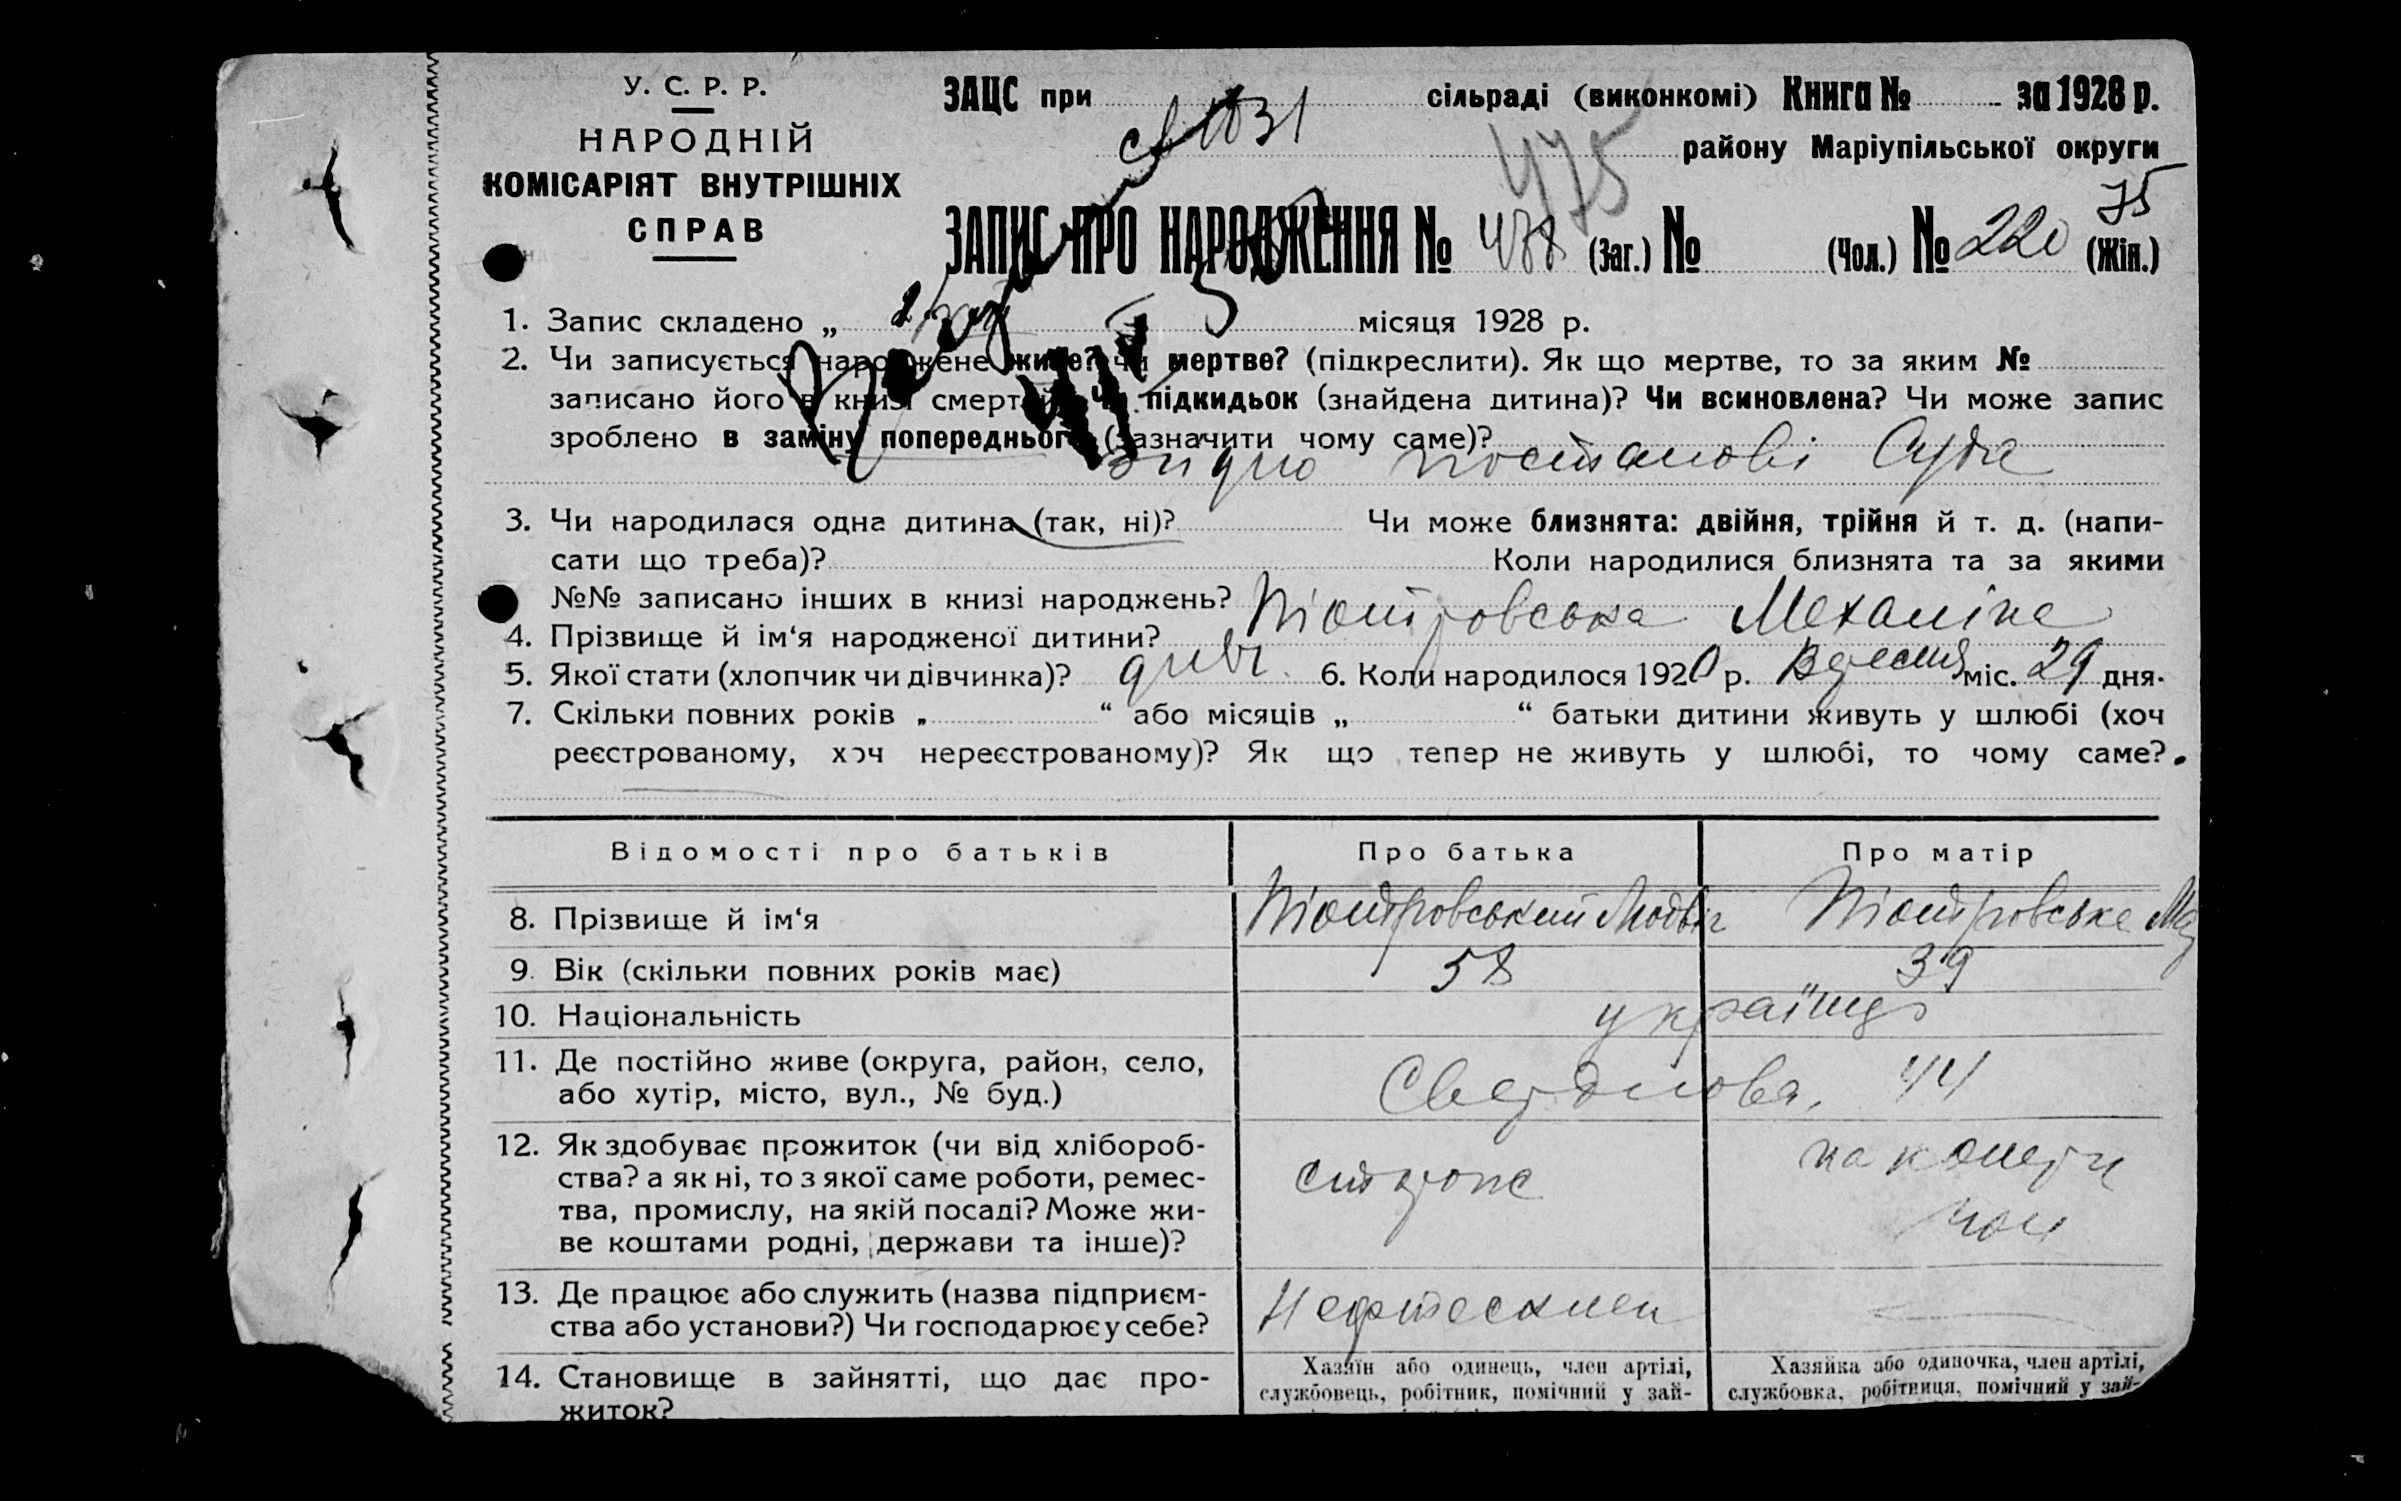 У. С. Р. Р.
НАРОДНІЙ
КОМІСАРІЯТ ВНУТРІШНІХ
СПРАВ
ЗАЦС при сільраді (виконкомі) Книга № за 1928 р.
району Маріупільської округи
475
75
ЗАПИС ПРО НАРОДЖЕННЯ № 478 (Заг.) № (Чол.) № 220 (Жін.)
1. Запис складено „ місяця 1928 р.
2. Чи записується народжене живе? чи мертве? (підкреслити). Як що мертве, то за яким №
записано його в книзі смертей? Чи підкидьок (знайдена дитина)? Чи всиновлена? Чи може запис
зроблено в заміну попереднього (зазначити чому саме)?
згидно постанові Суда
3. Чи народилася одна дитина (так, ні)? Чи може близнята: двійня, трійня й т. д. (напи-
сати що треба)? Коли народилися близнята та за якими
№№ записано інших в книзі народжень?
4. Прізвище й ім‘я народженої дитини? Піотровська Механіна
5. Якої стати (хлопчик чи дівчинка)? дивч. 6. Коли народилося 1920 р. Вересня міс. 29 дня.
7. Скільки повних років „ “ або місяців „ “ батьки дитини живуть у шлюбі (хоч
реєстрованому, хоч нереєстрованому)? Як що тепер не живуть у шлюбі, то чому саме?
Відомості про батьків Про батька Про матір
8. Прізвище й ім‘я Піотровський Людвіг Піотровська
9. Вік (скільки повних років має) 58 39
10. Національність українці
11. Де постійно живе (округа, район, село,
або хутір, місто, вул., № буд.) Свердлова, 44
12. Як здобуває прожиток (чи від хлібороб-
ства? а як ні, то з якої саме роботи, ремес-
тва, промислу, на якій посаді? Може жи-
ве коштами родні, держави та інше)?
сторож
на
13. Де працює або служить (назва підприєм-
ства або установи?) Чи господарює у себе?
Нефтесклад
14. Становище в зайнятті, що дає про-
житок?
Хазяїн або одинець, член артілі,
службовець, робітник, помічний у зай-
Хазяйка або одиночка, член артілі,
службовка, робітниця, помічний у зай-